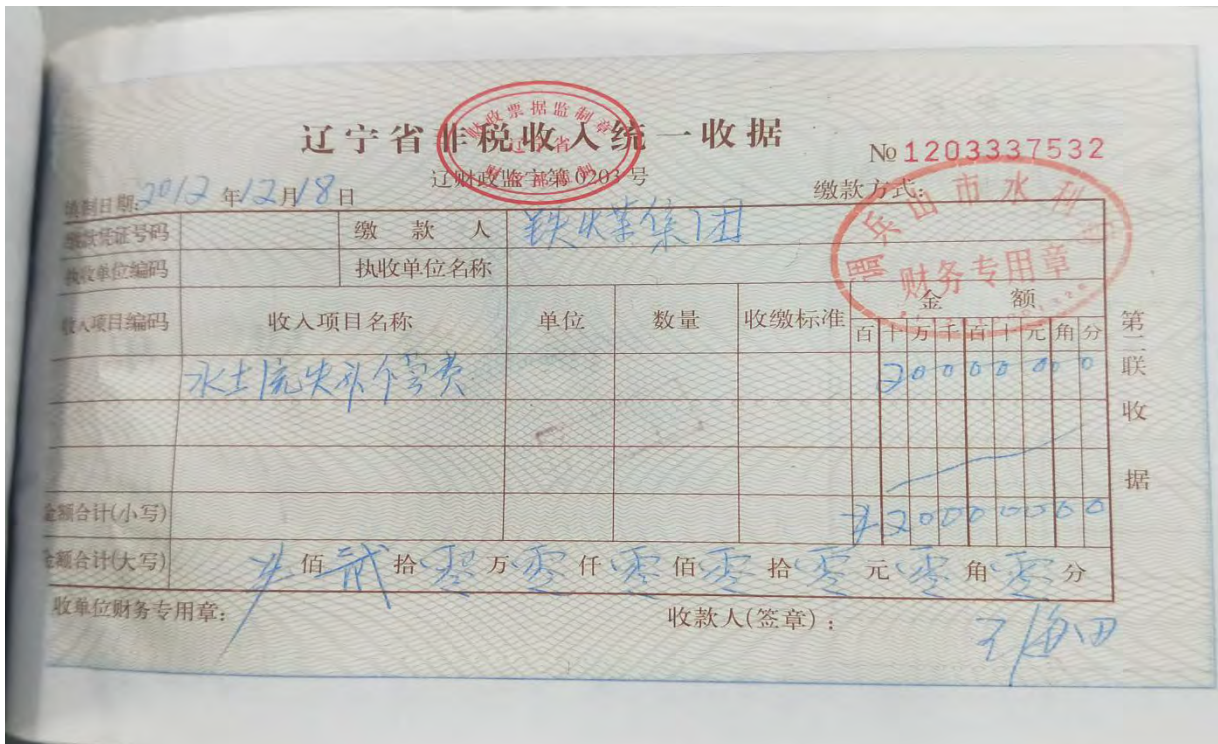 辽宁省非税收入统一收据
财政票据监制章
辽宁省
№ 1203337532
辽财政监字第0203号
填制日期: 2012 年 12 月 18 日
缴款方式:
调兵山市水利局
财务专用章
缴款凭证号码 缴款人 铁煤集团
执收单位编码 执收单位名称
收入项目编码 收入项目名称 单位 数量 收缴标准 金额
百 十 万 千 百 十 元 角 分
水土流失补偿费 2 0 0 0 0 0 0 0
金额合计(小写) ¥ 2 0 0 0 0 0 0 0
金额合计(大写) 佰 贰 拾 零 万 零 仟 零 佰 零 拾 零 元 零 角 零 分
收单位财务专用章:
收款人(签章):
王海田
第二联 收据